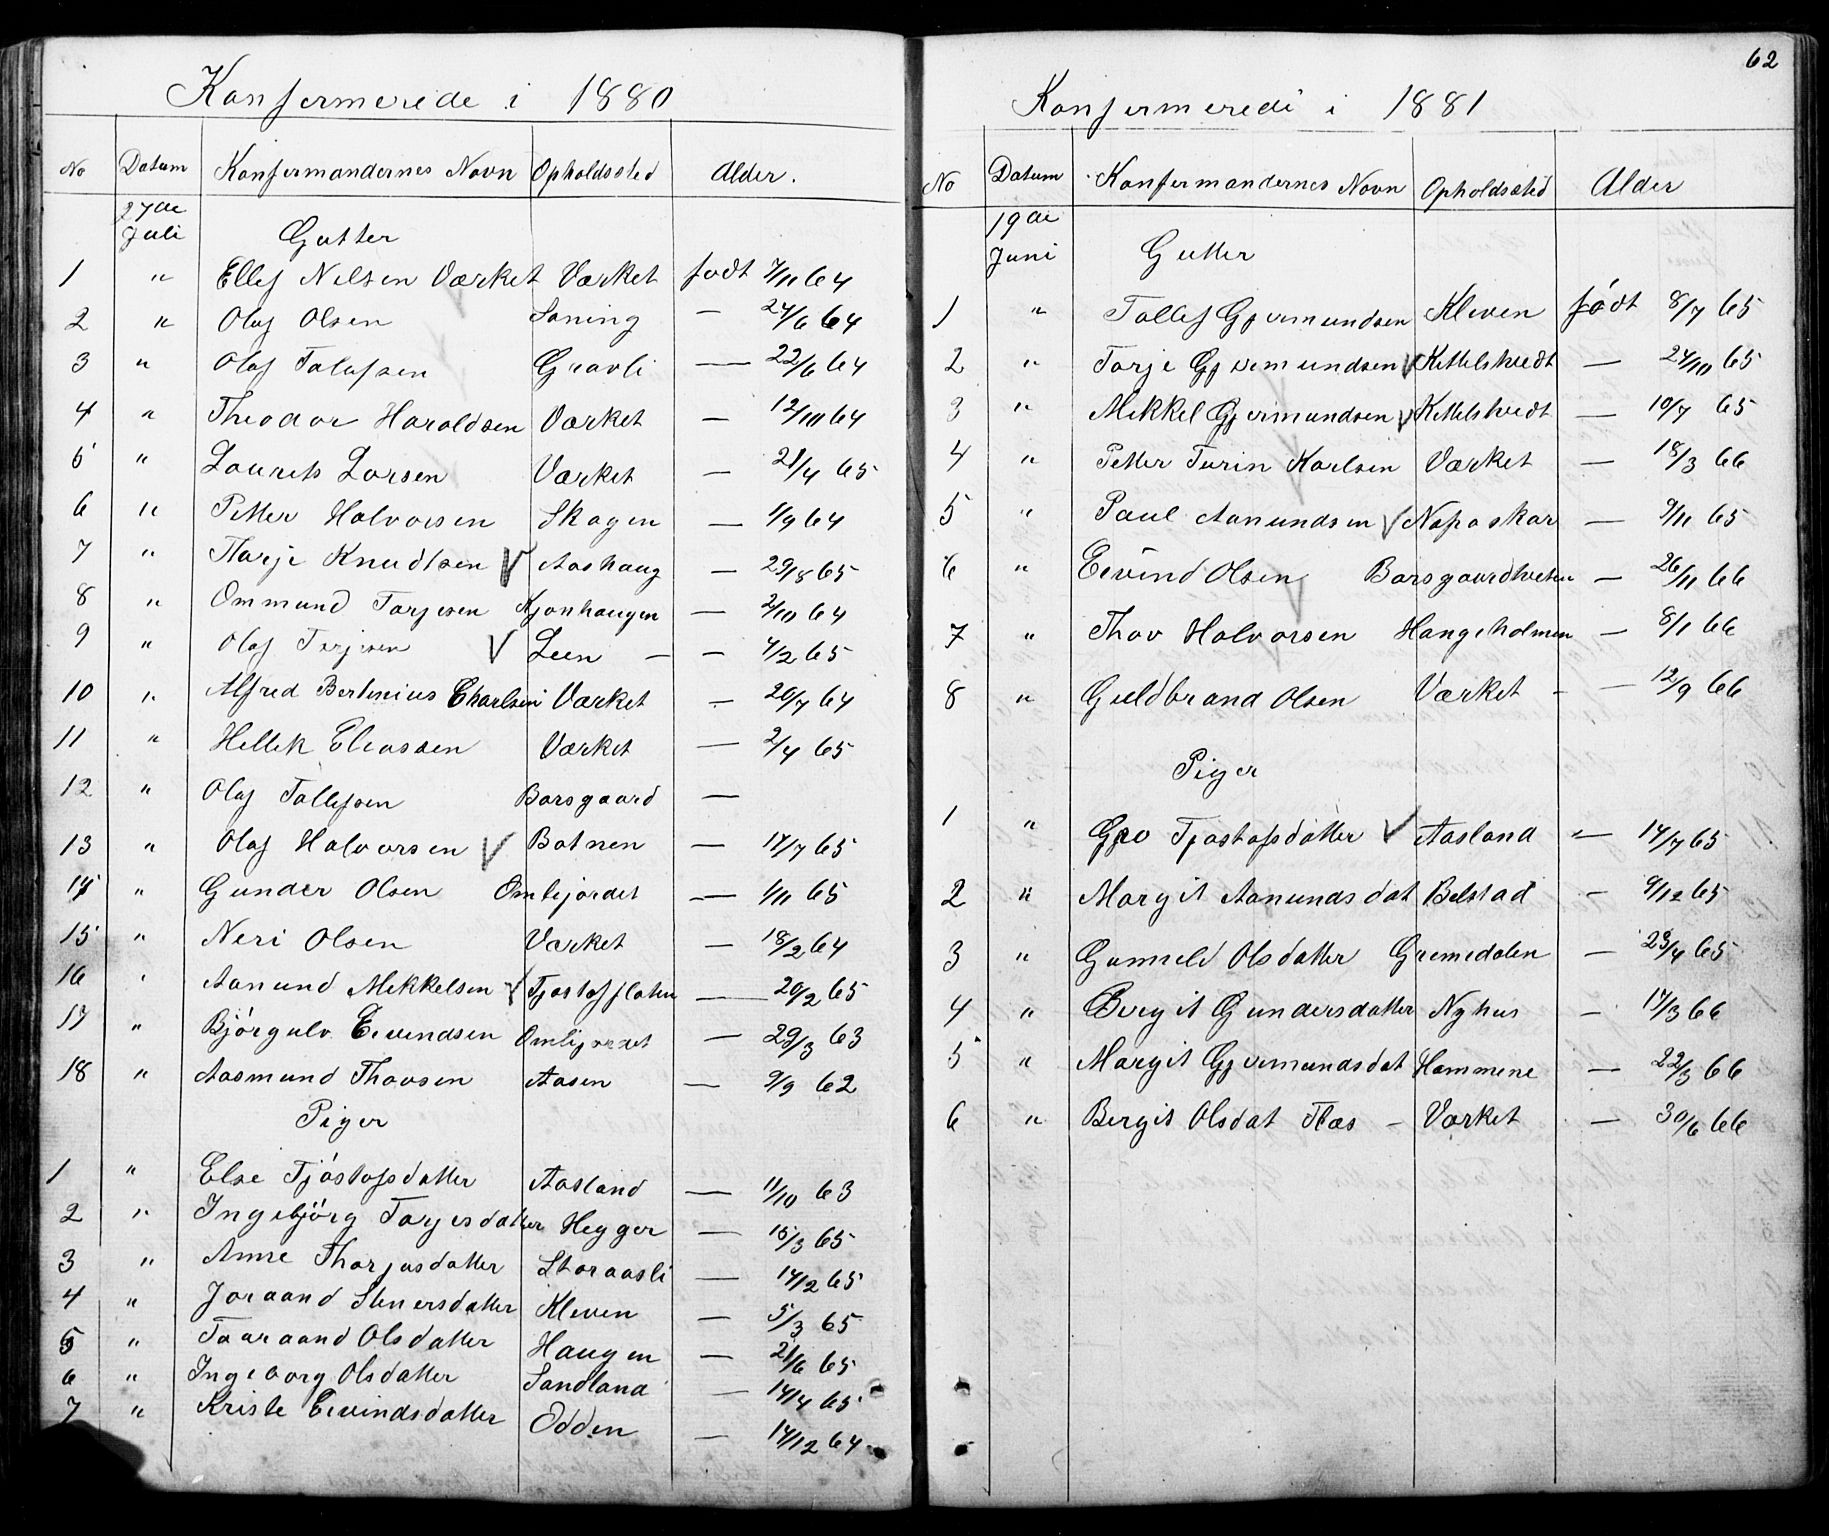 Konfermerede i 1880
No Datum Konfermandernes Navn Opholdssted Alder.
27de Juli Gutter
1 " Ellef Nilsen Værket Værket født 7/11 64
2 " Olaf Olsen Saning — 24/6 64
3 " Olaf Talafsen Gravli — 22/6 64
4 " Theodor Haraldsen Værket — 12/10 64
5 " Laurits Larsen Værket — 21/4 65
6 " Petter Halvorsen Skogen — 1/9 64
7 " Tarje Knudtsen V Aashaug — 29/8 65
8 " Ommund Torjesen Kjonhaugen — 2/10 64
9 " Olaf Terjesen V Leen — — 4/2 65
10 " Alfred Bertinius Charlsen Værket — 20/7 64
11 " Hellik Eliassen Værket — 2/4 65
12 " Olaf Tallefsen Borsgaard —
13 " Olaf Halvorsen V Botnen — 17/7 65
14 " Gunder Olsen Omlijordet — 1/11 65
15 " Neri Olsen Værket — 18/2 64
16 " Aanund Mikkelsen V Tjostofflaten — 20/2 65
17 " Bjørgulv Eivindsen Omlijordet — 29/3 63
18 " Aasmund Thovsen Aasen — 9/9 62
Piger
1 " Else Tjøstofsdatter Aasland — 11/10 63
2 " Ingebjørg Torjesdatter Hegger — 15/3 65
3 " Anne Thorjusdatter Storaasli — 14/2 65
4 " Joraand Stenersdatter Kleven — 5/3 65
5 " Taaraand Olsdatter Haugen — 21/6 65
6 " Ingeborg Olsdatter Sandland — 14/4 65
7 " Kriste Eivindsdatter Odden — 14/12 64
62
Konfermeredi i 1881
No Datum Konfermandernes Navn Opholdssted Alder
19de Juni Gutter
1 " Tallef Gjermundsen Kleven født 8/7 65
2 " Torje Gjermundsen V Kittelstvedt — 24/10 65
3 " Mikkel Gjermundsen V Kittelstvedt — 10/7 65
4 " Petter Turin Karlsen Værket — 18/3 66
5 " Paul Aanundsen V Napaskar — 9/11 65
6 " Eivind Olsen Borsgaardtveten — 26/11 66
7 " Thov Halvorsen Hangeholmen — 8/1 66
8 " Guldbrand Olsen Værket - — 12/9 66
Piger
1 " Gro Tjostofsdatter V Aasland — 14/7 65
2 " Margit Aanundsdat Belstad — 9/12 65
3 " Gunnild Olsdatter Grimedalen — 23/4 65
4 " Bergit Gundersdatter Nyhus — 17/3 66
5 " Margit Gjermundsdat Hommene — 22/3 66
6 " Bergit Olsdat Næs - Værket — 30/6 66